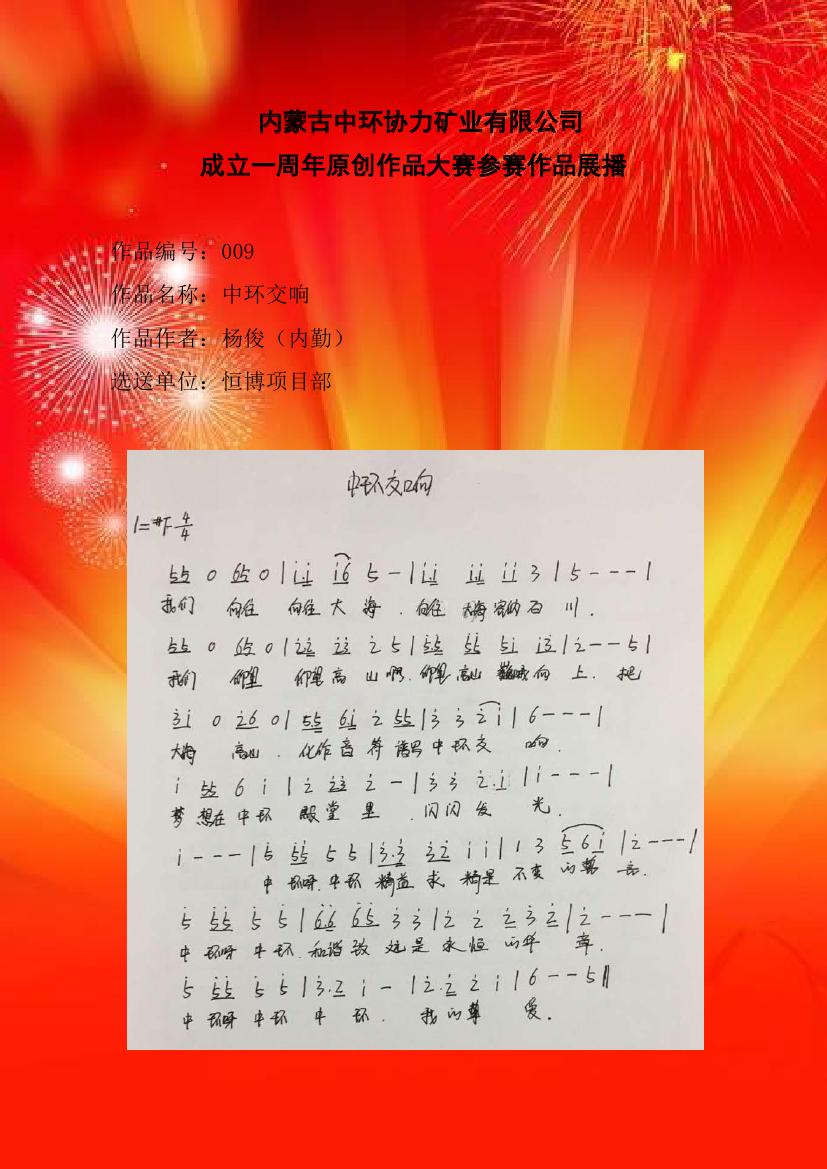 内蒙古中环协力矿业有限公司
成立一周年原创作品大赛参赛作品展播
作品编号：009
作品名称：中环交响
作品作者：杨俊（内勤）
选送单位：恒博项目部
中环交响
1=#F 4/4
55 0 65 0 | i.i i6 5 - | i.i ii ii 3 | 5 - - - |
我们 向往 向往大海．向往 大海 容纳百川．
55 0 65 0 | 22 23 2 5 | 55 55 5i i3 | 2 - - 5 |
我们 仰望 仰望高山啊．仰望高山 向上．把
3i 0 26 0 | 55 6i 2 55 | 3 3 2 i | 6 - - - |
大海 高山．化作音符 谱写中环交响．
i 55 6 i | 2 23 2 - | 3 3 2.i | i - - - |
梦想在中环 殿堂里．闪闪发光．
i - - - | 5 55 5 5 | 3.3 32 i i | i 3 5 6 i | 2 - - - |
中环呀．中环 精益求精是不变的誓言．
5 55 5 5 | 66 65 3 3 | 2 2 2 3 2 | 2 - - - |
中环呀中环．和谐 是永恒的
5 55 5 5 | 3.2 i - | 2.2 2 i | 6 - - 5 ||
中环呀中环 中环．我的 爱．